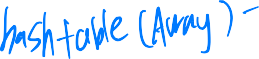 hashtable (Array) -